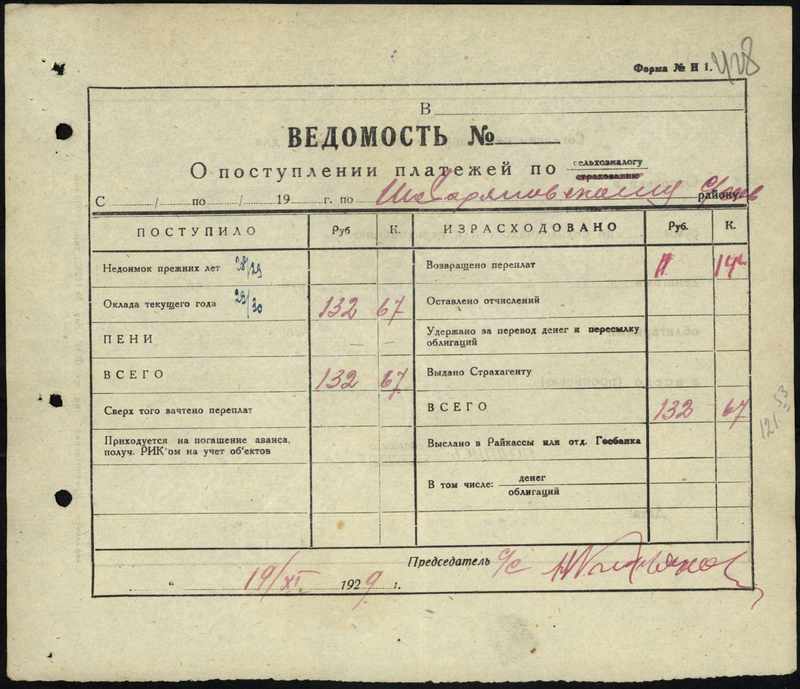 Форма № Н 1. 428
В
ВЕДОМОСТЬ №
О поступлении платежей по сельхозналогу
страхованию
С / по / 19 г. по району.
ПОСТУПИЛО Руб К. ИЗРАСХОДОВАНО Руб. К.
Недоимок прежних лет 28/29 Возвращено переплат 11 14
Оклада текущего года 29/30 132 67 Оставлено отчислений
ПЕНИ Удержано за перевод денег и пересылку
облигаций
ВСЕГО 132 67 Выдано Страхагенту
Сверх того зачтено переплат ВСЕГО 132 67
121 53
Приходуется на погашение аванса, Выслано в Райкассы или отд. Госбанка
получ. РИК'ом на учет об'ектов
В том числе: денег
облигаций
Председатель с/с
" 19/XI 1929 г.